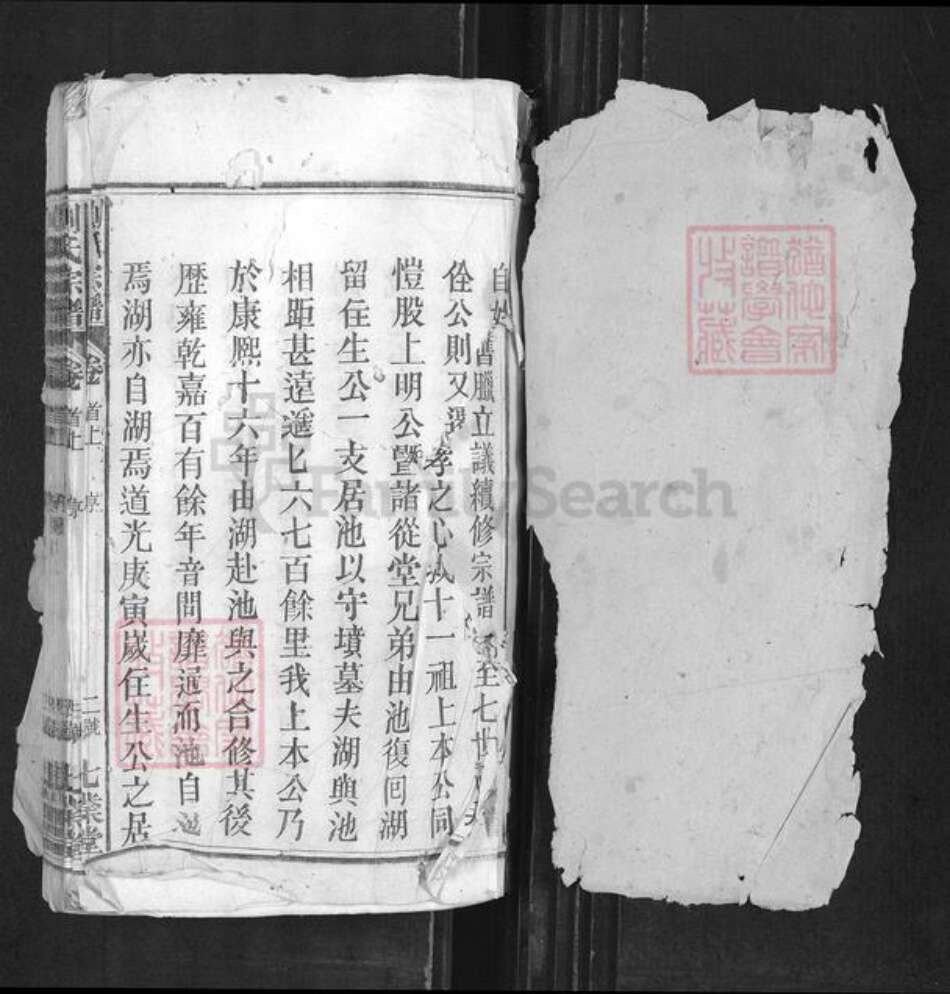 自
舊臘立議續修宗譜 至七
佺公則又 孝之心 十一祖上本公同
愷股上明公暨諸從堂兄弟由池復囘湖
留佺生公一支居池以守墳墓夫湖與池
相距甚遠遞匕六七百餘里我上本公乃
於康熈十六年由湖赴池與之合修其後
歴雍乾嘉百有餘年音問靡通而池自
焉湖亦自湖焉道光庚寅歲佺生公之居
氏宗譜 卷首上 序 二號 七業堂
譜學會
收藏
FamilySearch